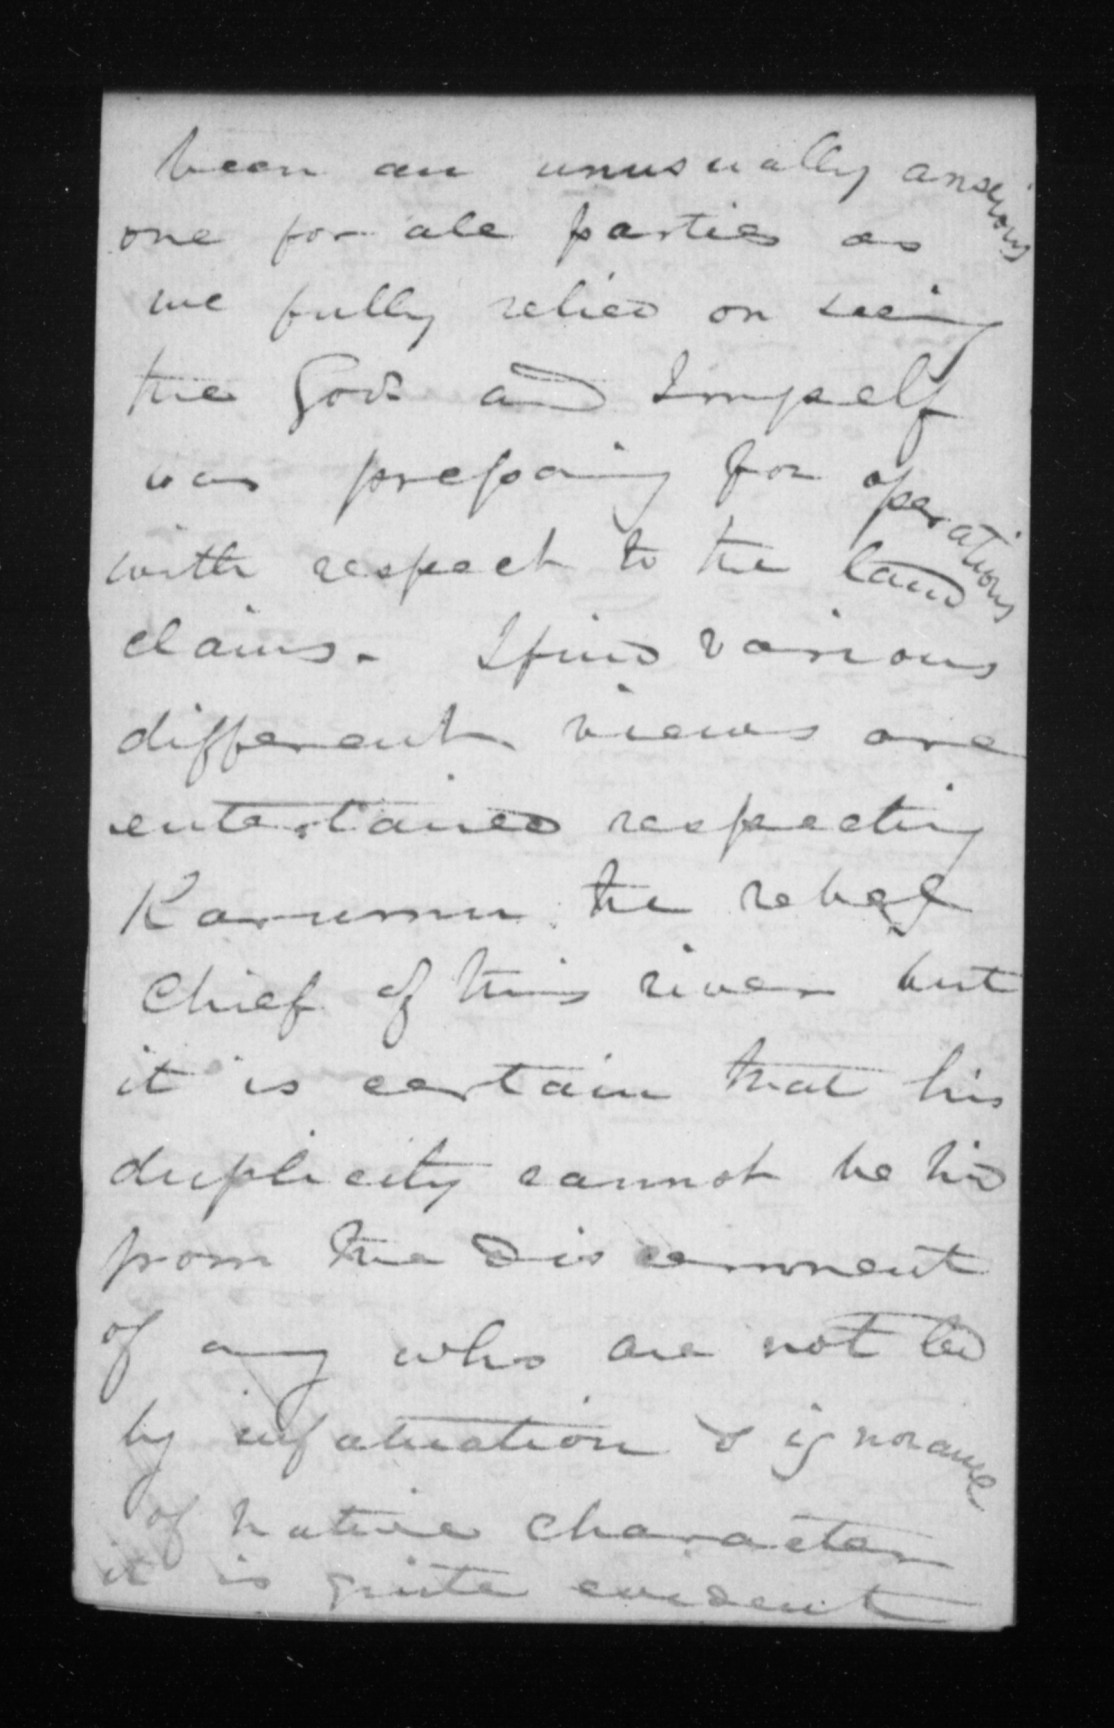 been an unusually anxious
one for all parties as
we fully relied on seeing
the Govr and I myself
was preparing for operations
with respect to the land
claims. I find various
different views are
entertained respecting
the rebel
Chief of this river but
it is certain that his
duplicity cannot be hid
from the discernment
of any who are not led
by infatuation & ignorance
of native character
it is quite evident